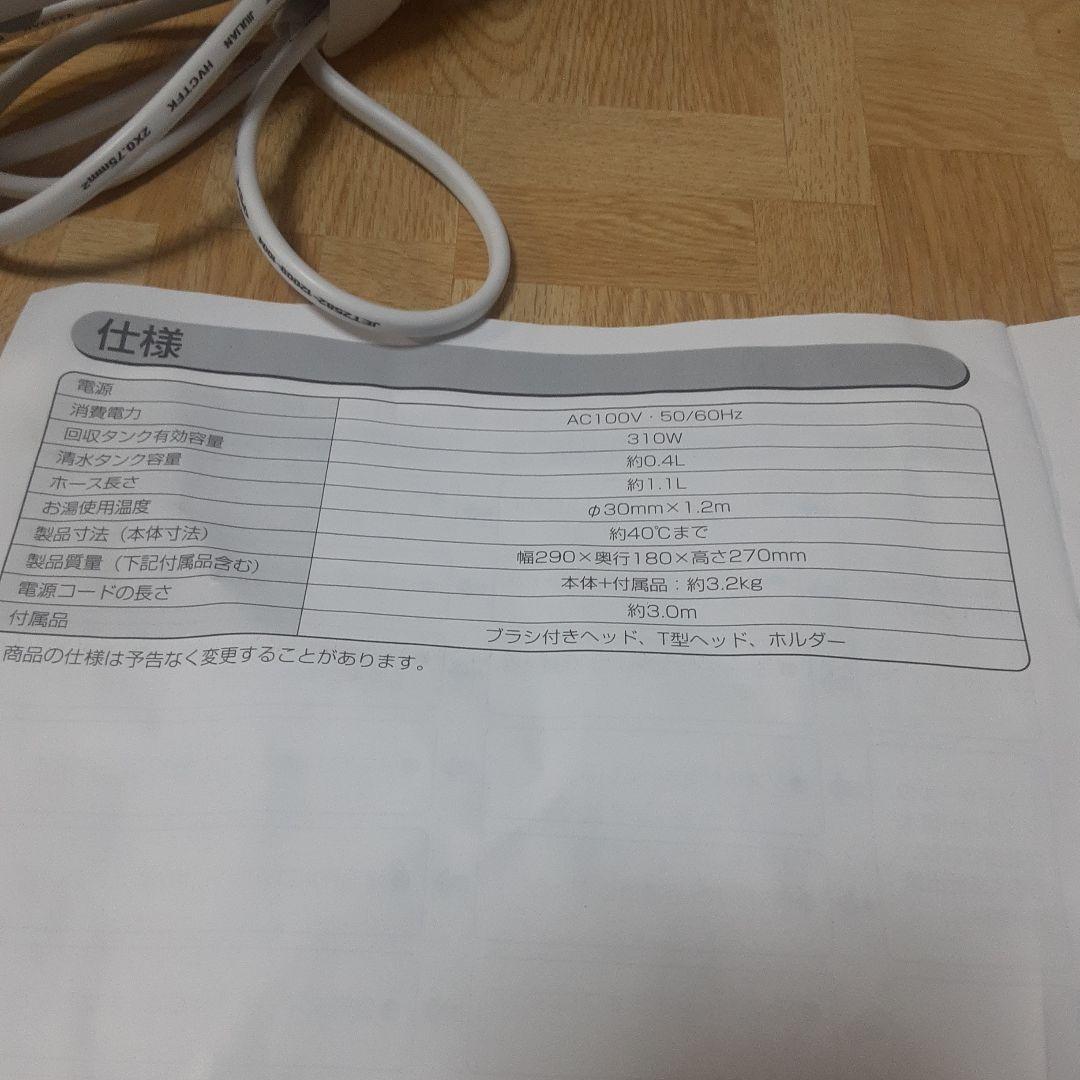 JIULIAN HVCTFK 2X0.75mm2
JET2582-12009-1004
仕様
電源 AC100V・50/60Hz
消費電力 310W
回収タンク有効容量 約0.4L
清水タンク容量 約1.1L
ホース長さ φ30mm×1.2m
お湯使用温度 約40℃まで
製品寸法（本体寸法） 幅290×奥行180×高さ270mm
製品質量（下記付属品含む） 本体+付属品：約3.2kg
電源コードの長さ 約3.0m
付属品 ブラシ付きヘッド、T型ヘッド、ホルダー
商品の仕様は予告なく変更することがあります。